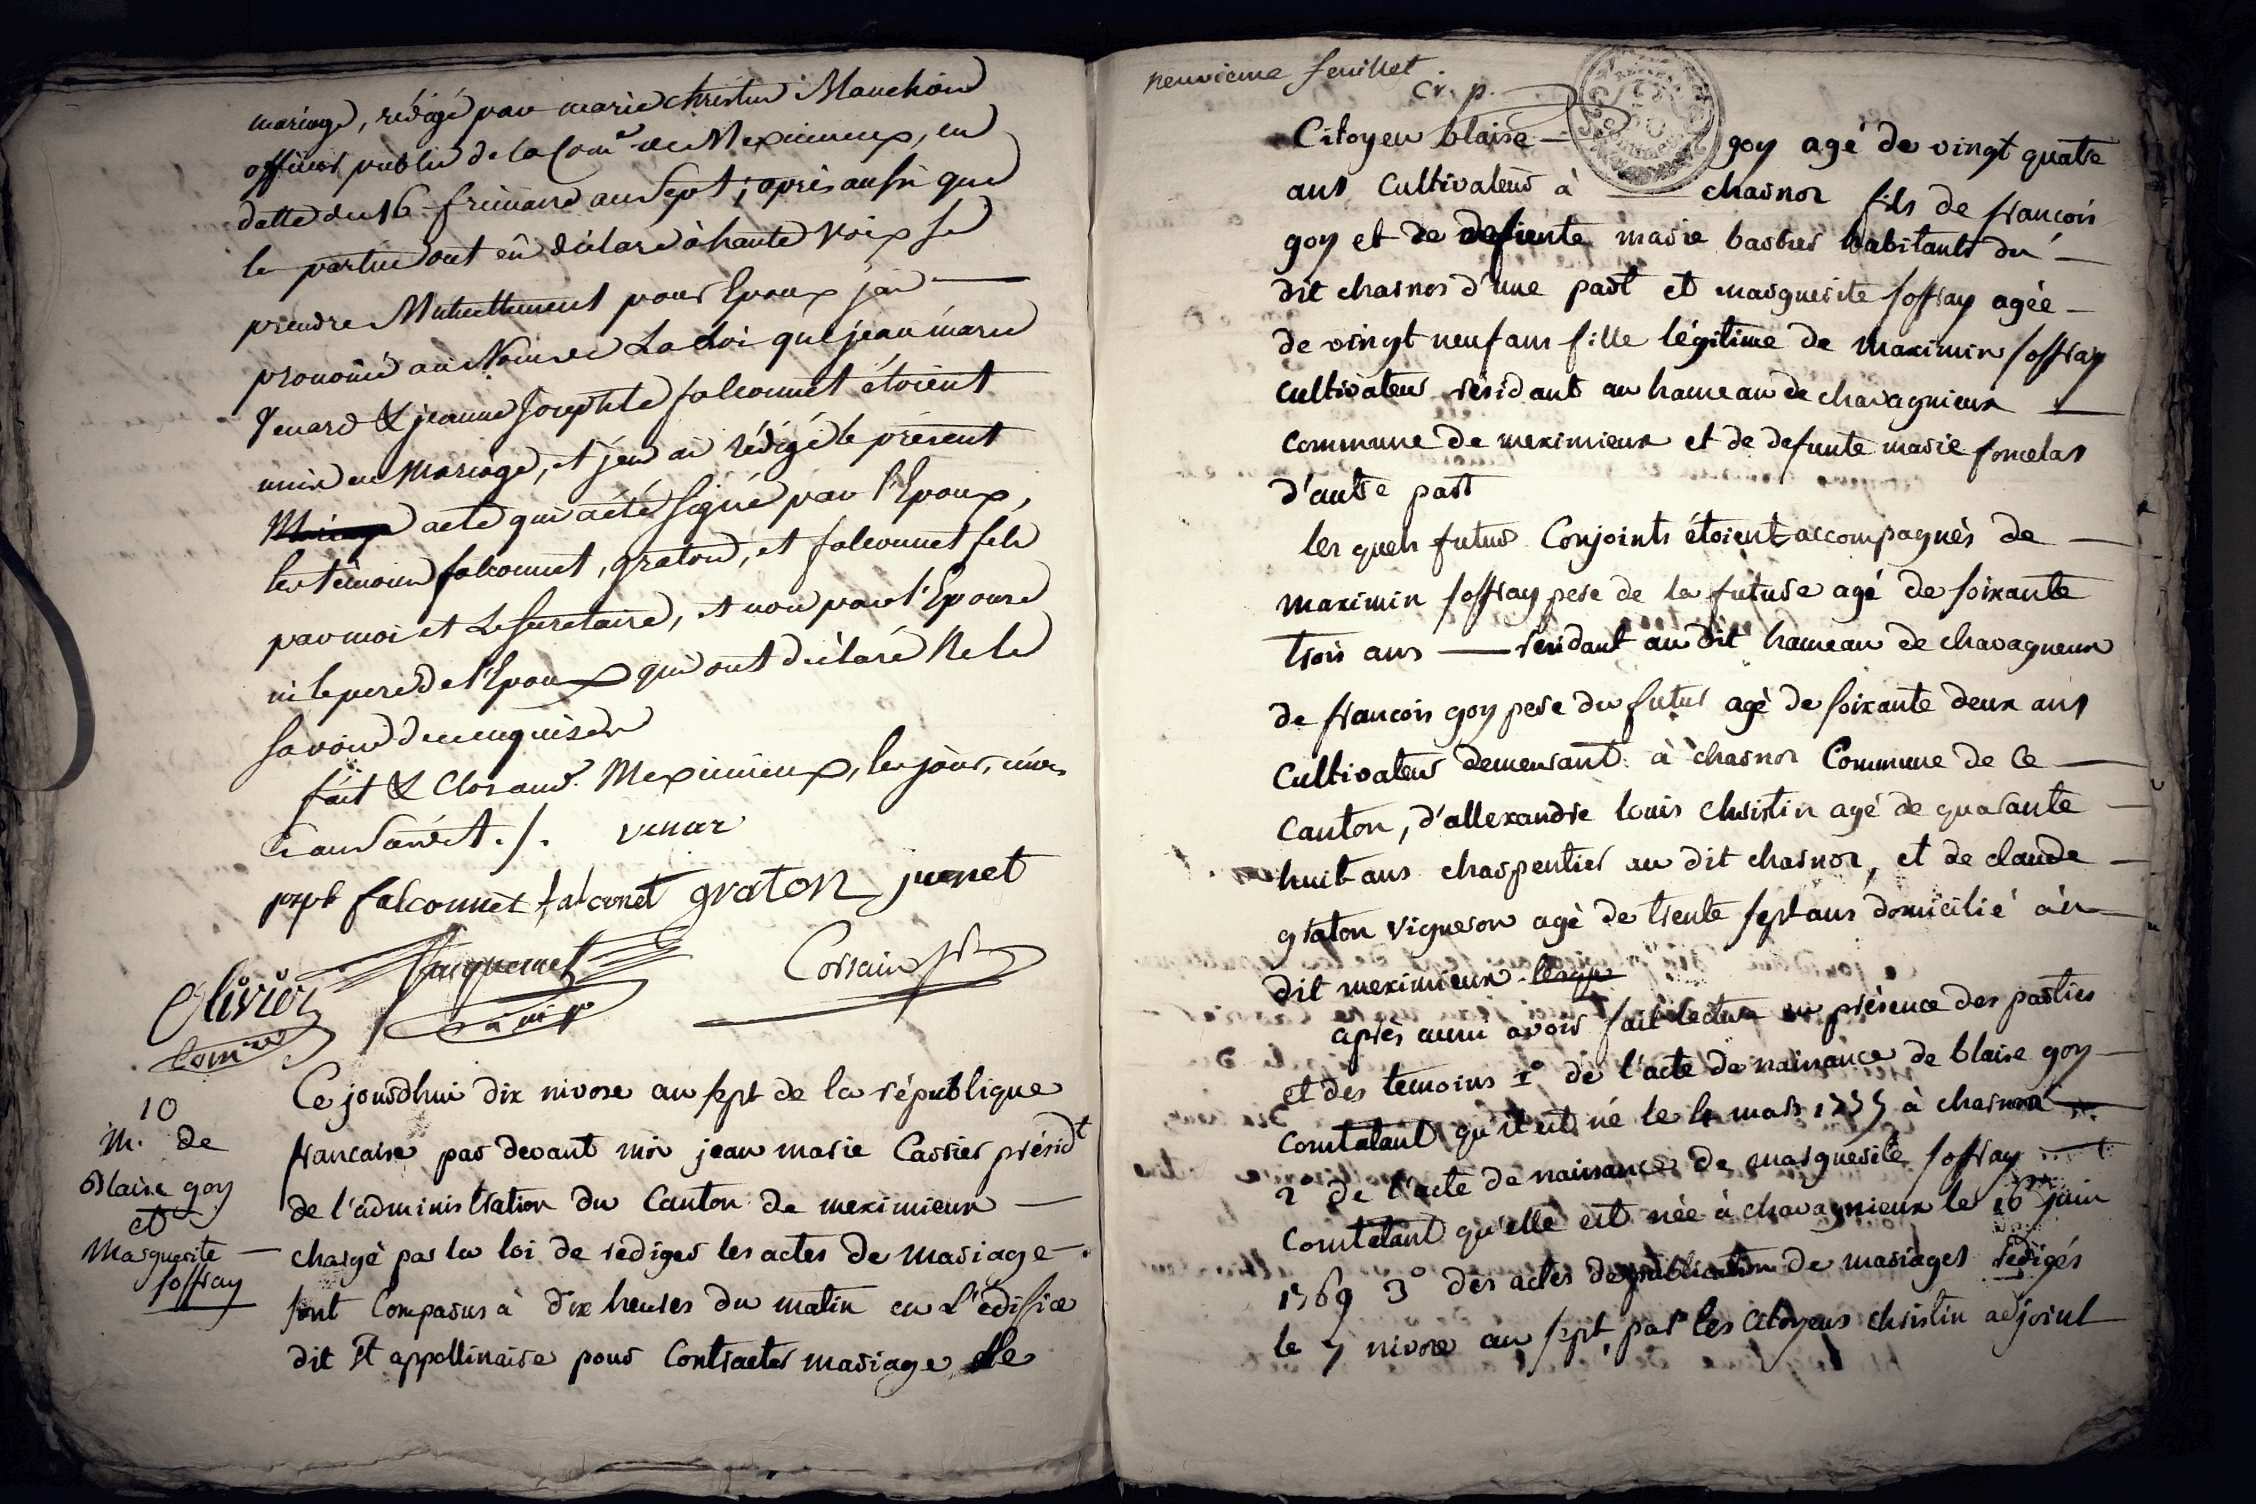 mariage, rédigé par marie christin Mauchoin
officier public de la Com.e de Meximieux, en
datte du 16 frimaire an Sept; après aussi que
le parties ont eû déclaré à haute voix se
prendre Mutuellement pour Epoux jai —
prononcé au Nom de La Loi que jean marie
Venard & jeanne Josephte falconnet étoient
unis en Mariage, et j'en ai rédigé le présent
acte qui a été signé par l'Epoux,
les témoins falconnet, graton, et falconnet fils
par moi et Le Secretaire, et non par l'Epouse
ni le pere de l'Epoux qui ont déclaré Ne le
savoir de ce enquis
fait & Clos aud. Meximieux, les jour, mois
& an Sus dit ./. venar
joseph falconnet falconet graton junet
Olivier Corsain
Com.re
10
m. de
Blaise goy
et
Marguerite —
soffray
Ce jourdhui dix nivose an sept de la république
francaise par devant moi jean marie Carrier présidt
de l'administration du Canton de meximieux —
chargé par la loi de rediger les actes de mariage —
sont Comparus à dix heures du matin en L'édifice
dit St appollinaire pour Contracter mariage Le
neuvieme feuillet
Citoyen blaise — goy agé de vingt quatre
ans Cultivateur à — charnoz fils de francois
goy et de defunte marie barbier habitants du —
dit charnos d'une part et marguerite soffray agée —
de vingt neuf ans fille légitime de Maximin soffray
cultivateur résidant au hameau de chavagnieux —
commune de meximieux et de defunte marie fornelas
d'autre part
les quels futurs Conjoints étoient accompagnés de —
maximin soffray pere de la future agé de soixante
trois ans — residant au dit hameau de chavagneux
de francois goy pere du futur agé de soixante deux ans
Cultivateur demeurant à charnoz Commune de Ce —
Canton, d'allexandre louis christin agé de quarante —
huit ans charpentier au dit charnoz, et de claude —
graton vigneron agé de trente sept ans domicilié au —
dit meximieux
après aussi avoir fait lecture en présence des parties
et des temoins 1° de l'acte de naissance de blaise goy —
Constatant qu'il est né le 4 mars 1775 à charnoz
2° de l'acte de naissance de marguerite soffray —
Constatant qu'elle est née à chavagnieux le 16 juin
1769 3° des actes de publication de mariages rédigés
le 7 nivose an sept par les Citoyens christin adjoint